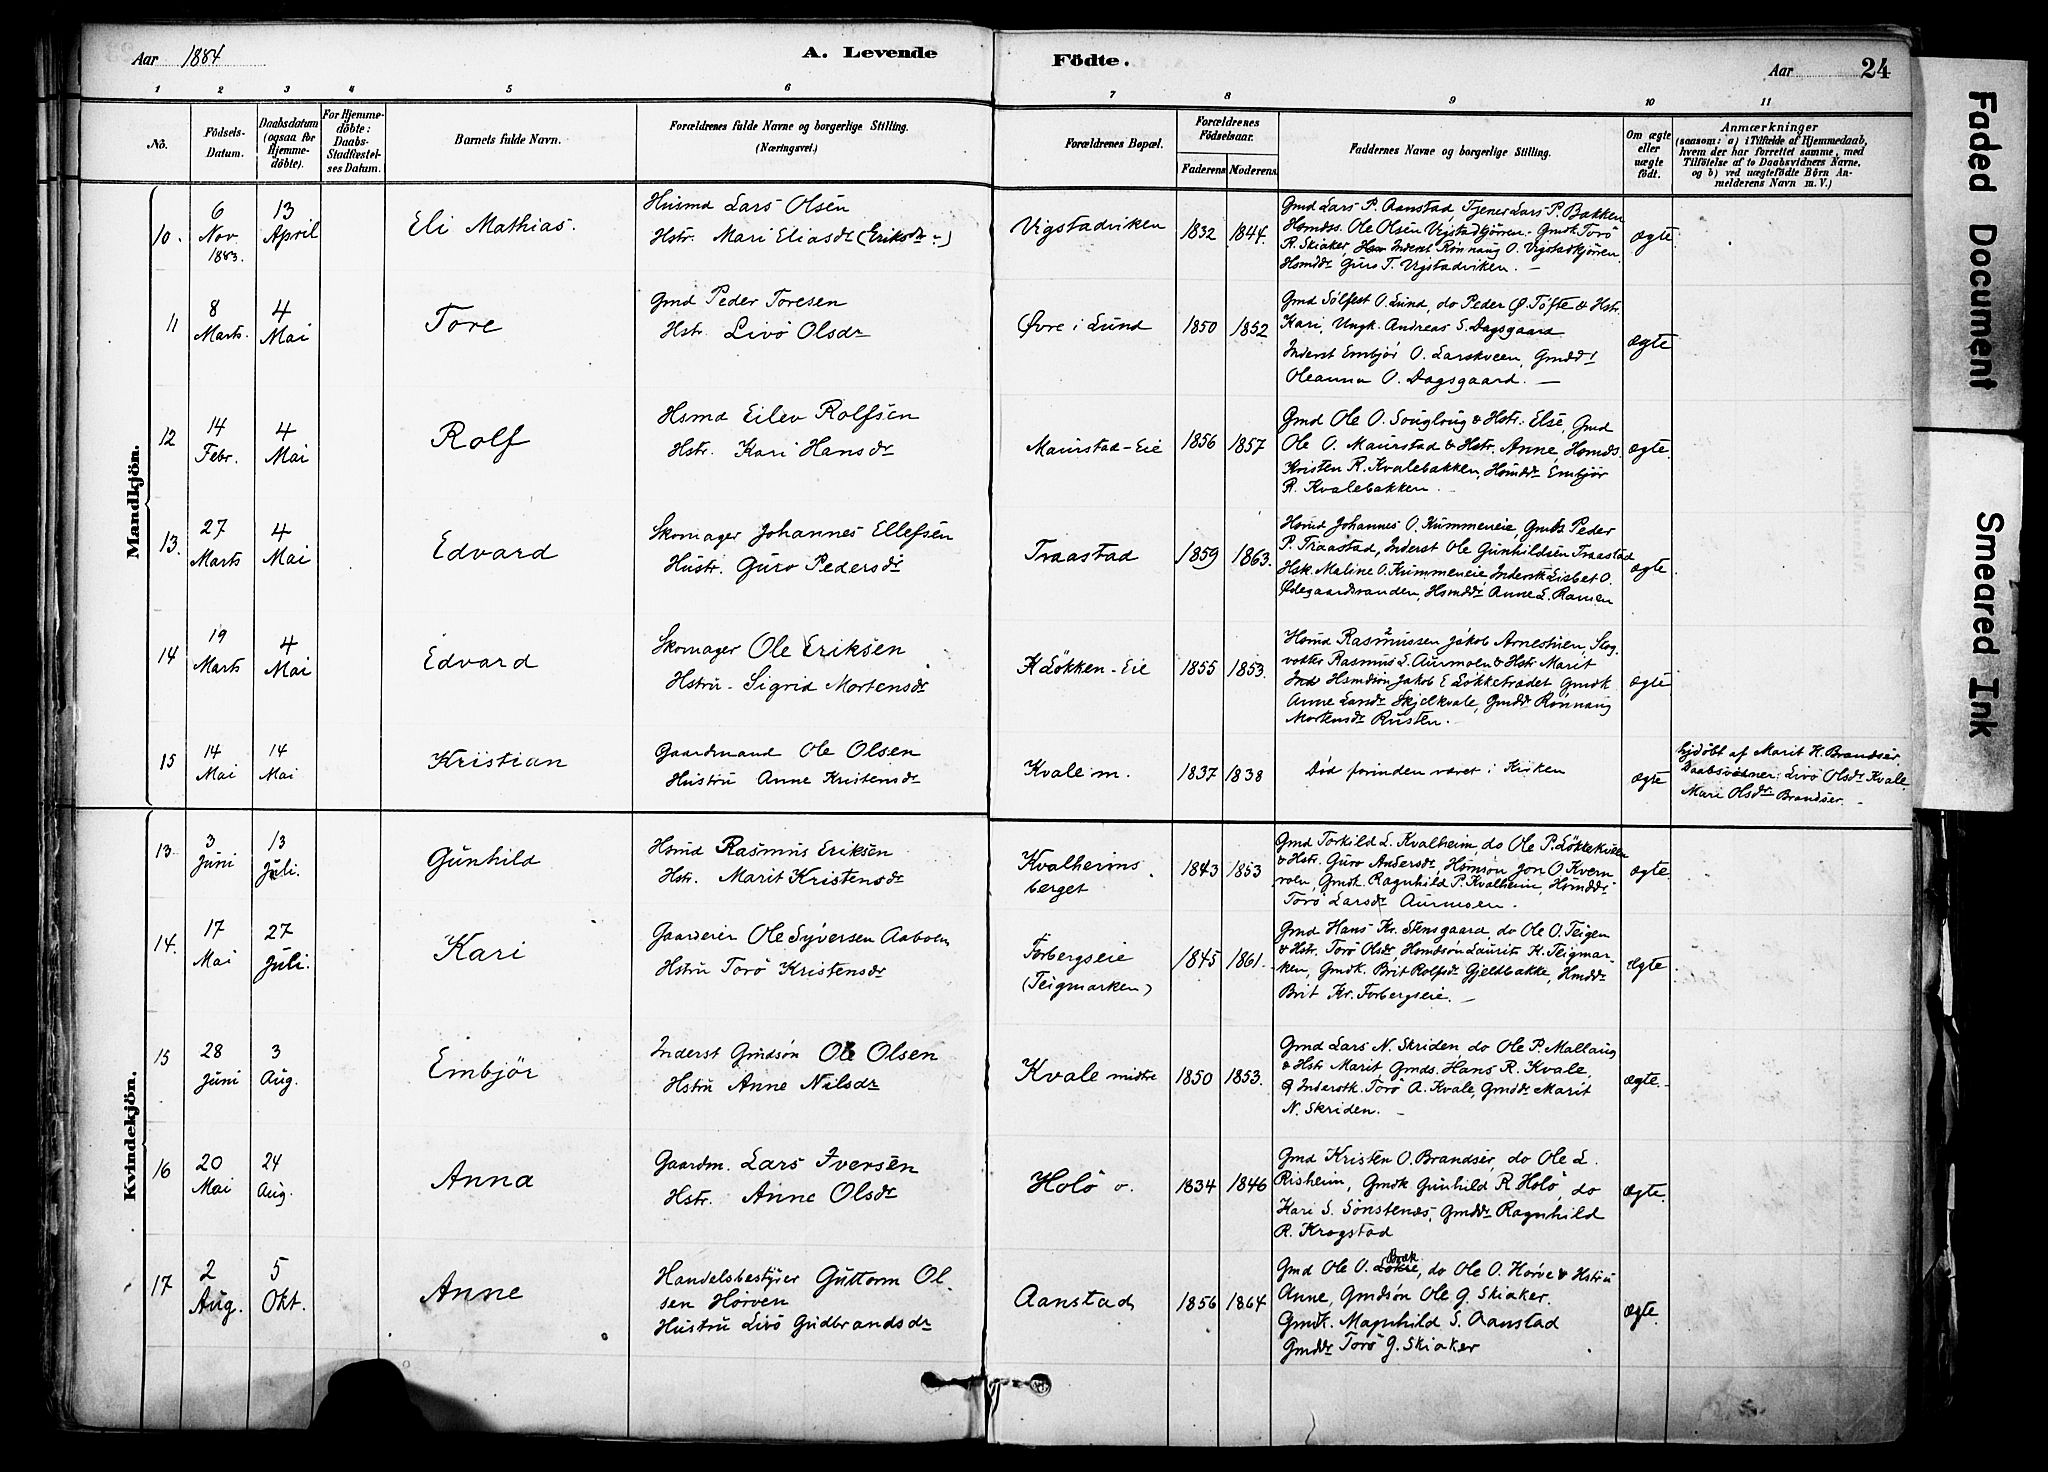 Aar 1884
A. Levende
Födte.
Aar
24
1 2 3 4 5 6 7 8 9 10 11
No.
Födsels-
Datum.
Daabsdatum
(ogsaa for
Hjemme-
döbte).
For Hjemme-
döbte:
Daabs-
Stadfæstel-
ses Datum.
Barnets fulde Navn.
Forældrenes fulde Navne og borgerlige Stilling.
(Næringsvei.)
Forældrenes Bopæl.
Forældrenes
Födselsaar.
Faderens Moderens
Faddernes Navne og borgerlige Stilling.
Om ægte
eller
uægte
födt.
Anmærkninger
(saasom: a) i Tilfælde af Hjemmedaab,
hvem der har forrettet samme, med
Tilföielse af to Daabsvidners Navne,
og b) ved uægtefödte Börn An-
melderens Navn m. V.)
Mandkjön.
10.
6
Nov.
1883.
13
April
Eli Mathias.
Husmd Lars Olsen
Hstr. Mari Eliasdr (Eriksdr)
Vigstadviken
1832
1844.
Gmd Lars P. Aanstad, Tjener Lars P. Bakken
Hsmdss. Ole Olsen Vigstadkjørren. Gmdk Torø
R. Skiaker, Inderst Rønnaug O. Vigstadkjørren
Hsmddr Guro T. Vigstadviken.
ægte
11
8
Marts.
4
Mai
Tore
Gmd Peder Toresen
Hstr. Livø Olsdr
Øvre i Lund
1850
1852
Gmd Sølfest O. Lund, do Peder Ø. Tofte & Hstr.
Kari, Ungk. Andreas S. Dagsgaard
Inderst Embjør O. Larskveen, Gmdd
Oleanna O. Dagsgaard.
ægte
12
14
Febr.
4
Mai
Rolf
Hsmd Eilev Rolfsen
Hstr. Kari Hansdr
Maurstad-Eie
1856
1857
Gmd Ole O. Sougloug & Hstr. Else, Gmd
Ole O. Maurstad & Hstr. Anne, Hsmds.
Kristen R. Kvalebakken, Hsmddr Embjør
R. Kvalebakken.
ægte.
13.
27
Marts
4
Mai
Edvard
Skomager Johannes Ellefsen
Hustr. Guro Pedersdr
Traastad
1859
1863.
Hsmd Johannes O. Kummeneie, Gmds Peder
P. Traastad, Inderst Ole Gunhildsen Traastad
Hsk. Maline O. Kummeneie, Inderstk Lisbet O.
Ødegaardsranden, Hsmddr Anne L. Ramen
ægte
14
19
Marts
4
Mai
Edvard
Skomager Ole Eriksen
Hstru. Sigrid Mortensdr
K Løkken-Eie
1855
1853.
Hsmd Rasmussen Jakob Arnestuen,
Rasmus L. Aurmoen & Hstr Marit
Ind Hsmdsøn Jakob E Løkketrædet Gmdk
Anne Larsdr Skjelkvale, Gmddr Rønnaug
Mortensdr Rusten.
ægte
15
14
Mai
14
Mai
Kristian
Gaardmand Ole Olsen
Hustru Anne Kristensdr
Kvale m.
1837
1838
Død forinden været i Kirken
ægte
hjdøbt af Marit H. Brandser,
Daabsvidner: Livø Olsdr Kvale,
Mari Olsdr Brandser.
Kvindekjön.
13
3
Juni
13
Juli.
Gunhild
Hsmd Rasmus Eriksen
Hstr. Marit Kristensdr
Kvalheims
berget
1843
1853
Gmd Torkild L. Kvalheim, do Ole P. Løkkekveen
& Hstr. Guro Andersdr, Hsmdsøn Jon O Kvern
volv, Gmdk. Ragnhild P. Kvalheim, Hsmddr
Torø Larsdr Aurmoen.
ægte.
14.
17
Mai
27
Juli.
Kari
Gaardeier Ole Syversen Aaboen
Hstru Torø Kristensdr
Forbergseie
(Teigmarken)
1845
1861.
Gmd Hans Kr. Stensgaard, do Ole O. Teigen
& Hstr. Torø Olsdr, Hsmdsøn Laurits K. Teigmar-
ken, Gmdk. Brit Rolfsdr Gjeldbakke, Hsmddr
Brit Kr. Forbergseie.
ægte
15
28
Juni
3
Aug.
Embjør
Inderst Gmdsøn Ole Olsen
Hstru Anne Nilsdr
Kvale midte
1850
1853.
Gmd Lars N. Skriden do Ole P. Mallaug
& Hstr Marit Gmds. Hans R. Kvale,
Inderstk. Torø A. Kvale, Gmddr Marit
N. Skriden.
ægte.
16
20
Mai
24
Aug.
Anna
Gaardm. Lars Iversen
Hstr. Anne Olsdr
Holø o.
1834
1846
Gmd Kristen O. Brandser, do Ole L.
Risheim, Gmdk Gunhild R Holø, do
Kari S. Sønstenæs, Gmddr Ragnhild
R. Krogstad
ægte.
17
2
Aug.
5
Okt.
Anne
Handelsbestyrer Guttorm Ol
sen Hørven
Hustru Livø Gudbrandsdr
Aanstad
1856
1864
Gmd Ole O. Løkke, do Ole O. Horve & Hstru
Anne, Gmdsøn Ole G. Skiaker.
Gmdk. Magnhild S. Aanstad
Gmddr Torø G. Skiaker
ægte.
Faded Document
Smeared Ink